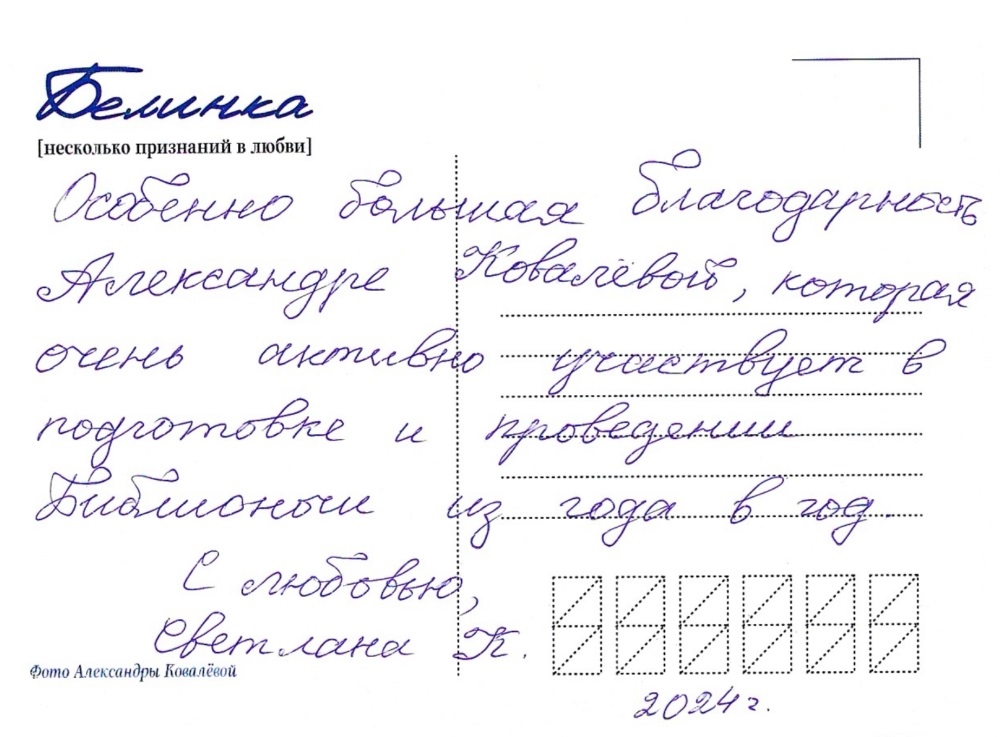 Белинка
[несколько признаний в любви]
Особенно большая благодарность
Александре Ковалёвой, которая
очень активно участвует в
подготовке и проведении
Библионочи из года в год.
С любовью,
Светлана К.
Фото Александры Ковалёвой
2024 г.